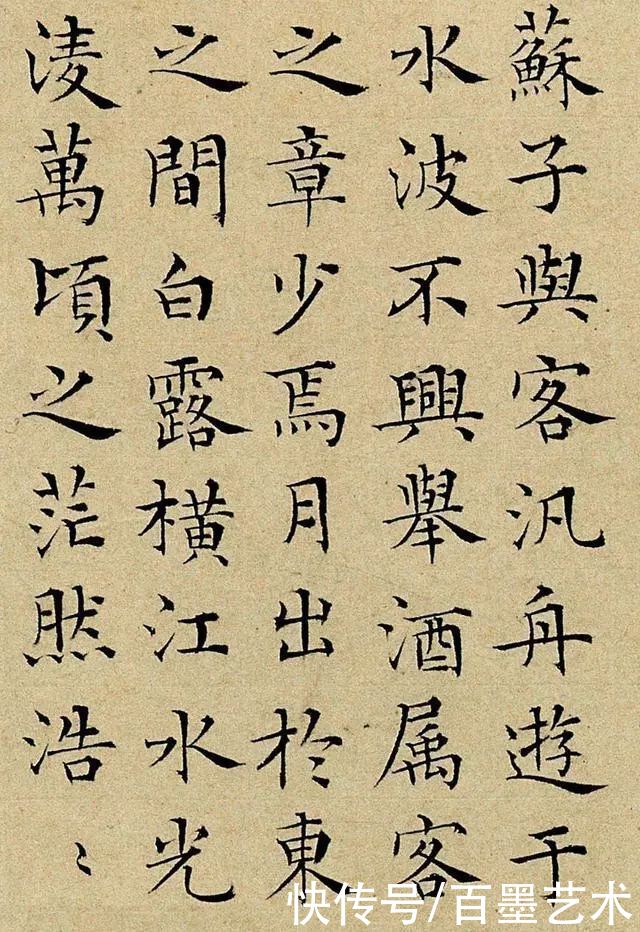 蘇子與客汎舟遊于
水波不興舉酒属客
之章少焉月出於東
之間白露橫江水光
淩萬頃之茫然浩〻
快传号/百墨艺术